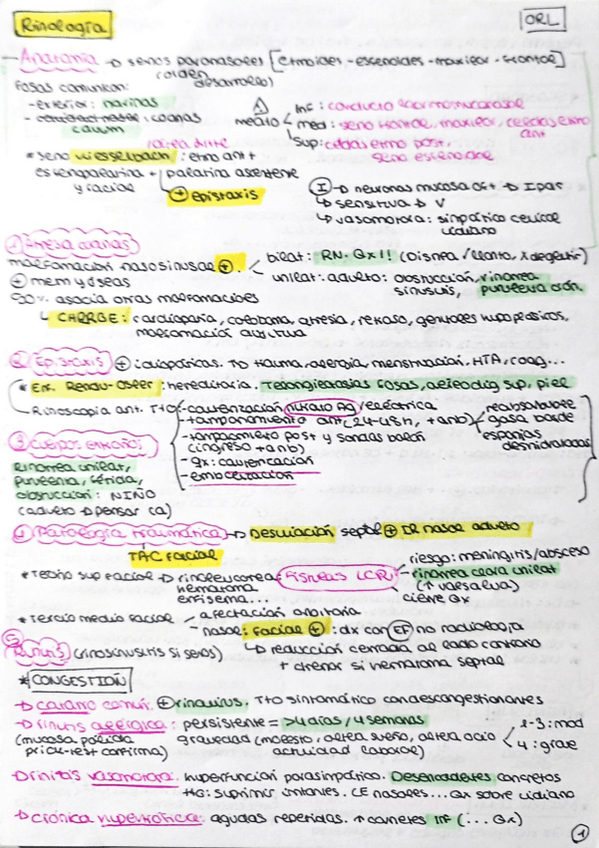 Rinología
ORL
Anatomía → senos paranasales [etmoides - esfenoides - maxilar - frontal]
(orden desarrollo)
Fosas comunican:
- exterior: narinas
coanas
cavum
medio
Inf: conducto lacrimonasal
med: seno frontal, maxilar, celdas etmo ant
Sup: celdas etmo post, seno esfenoide
* seno Wiesselbach: etmo ant +
esfenopalatina + palatina ascendente
y facial
⊕ epistaxis
I → neuronas mucosa olf → Ipar
↳ sensitiva → V
↳ vasomotora: simpático cervical
vidiano
① Atresia coanas
malformación nasosinusal ⊕.
⊕ mem y óseas
90% asocia otras malformaciones
bilat: RN. Qx!! (Disnea / llanto, x deglutir)
unilat: adulto: obstrucción, rinorrea
sinusitis, purulenta crón.
↳ CHARGE: cardiopatía, coloboma, atresia, retraso, genitales hipoplásicos,
malformación auricular
② Epistaxis ⊕ idiopáticas. → trauma, alergia, menstruación, HTA, coag...
* Enf. Rendu-Osler: hereditaria. Telangiectasias fosas, aerodig sup, piel
- Rinoscopia ant. Tto
- cauterización nitrato Ag / eléctrica
- tamponamiento ant (24-48h, + anb)
reabsorbible
gasa borde
esponjas
deshidratadas
- tamponamiento post y sondas balón
(ingreso + anb)
- qx: cauterización
- embolización
③ Cuerpos extraños
Rinorrea unilat,
purulenta, fétida,
obstrucción: NIÑO
(adulto → pensar ca)
④ Patología traumática → Desviación septal ⊕ IR nasal adulto
TAC Facial
* Tercio sup facial → rinolicuorrea
hematoma
enfisema...
Fístulas LCR
riesgo: meningitis/absceso
rinorrea clara unilat
(↑ valsalva)
cierre Qx
* Tercio medio facial
afectación orbitaria
nasal: Facial ⊕: dx con EF no radiología
↳ reducción cerrada al lado contrario
+ drenar si hematoma septal
⑤
Rinitis (rinosinusitis si senos)
* CONGESTIÓN
→ catarro común. ⊕ rinovirus. Tto sintomático con descongestionantes
→ rinitis alérgica: persistente = >4 días / 4 semanas
(mucosa pálida
prick-test confirma)
gravedad (molesto, altera sueño, altera ocio
actividad laboral)
1-3: mod
4: grave
→ rinitis vasomotora. hiperfunción parasimpático. Desencadenantes concretos
suprimir irritantes. CE nasales... Qx sobre vidiano
→ crónica hipertrófica: agudas repetidas. ↑ cornetes inf (... Qx)
1